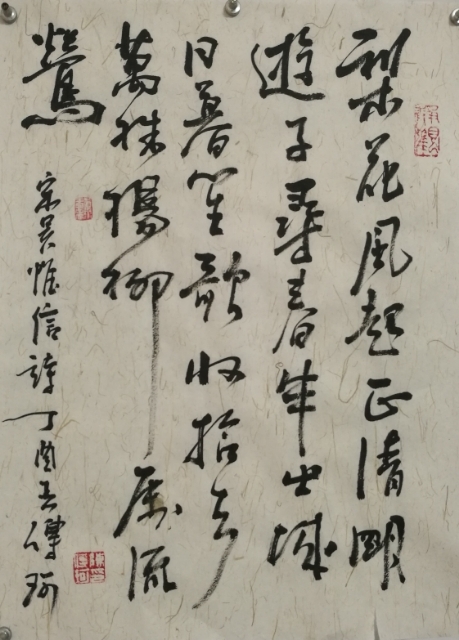 梨花风起正清明
遊子尋春半出城
日暮笙歌收拾去
萬株楊柳屬流
鶯
宋吴惟信詩丁酉